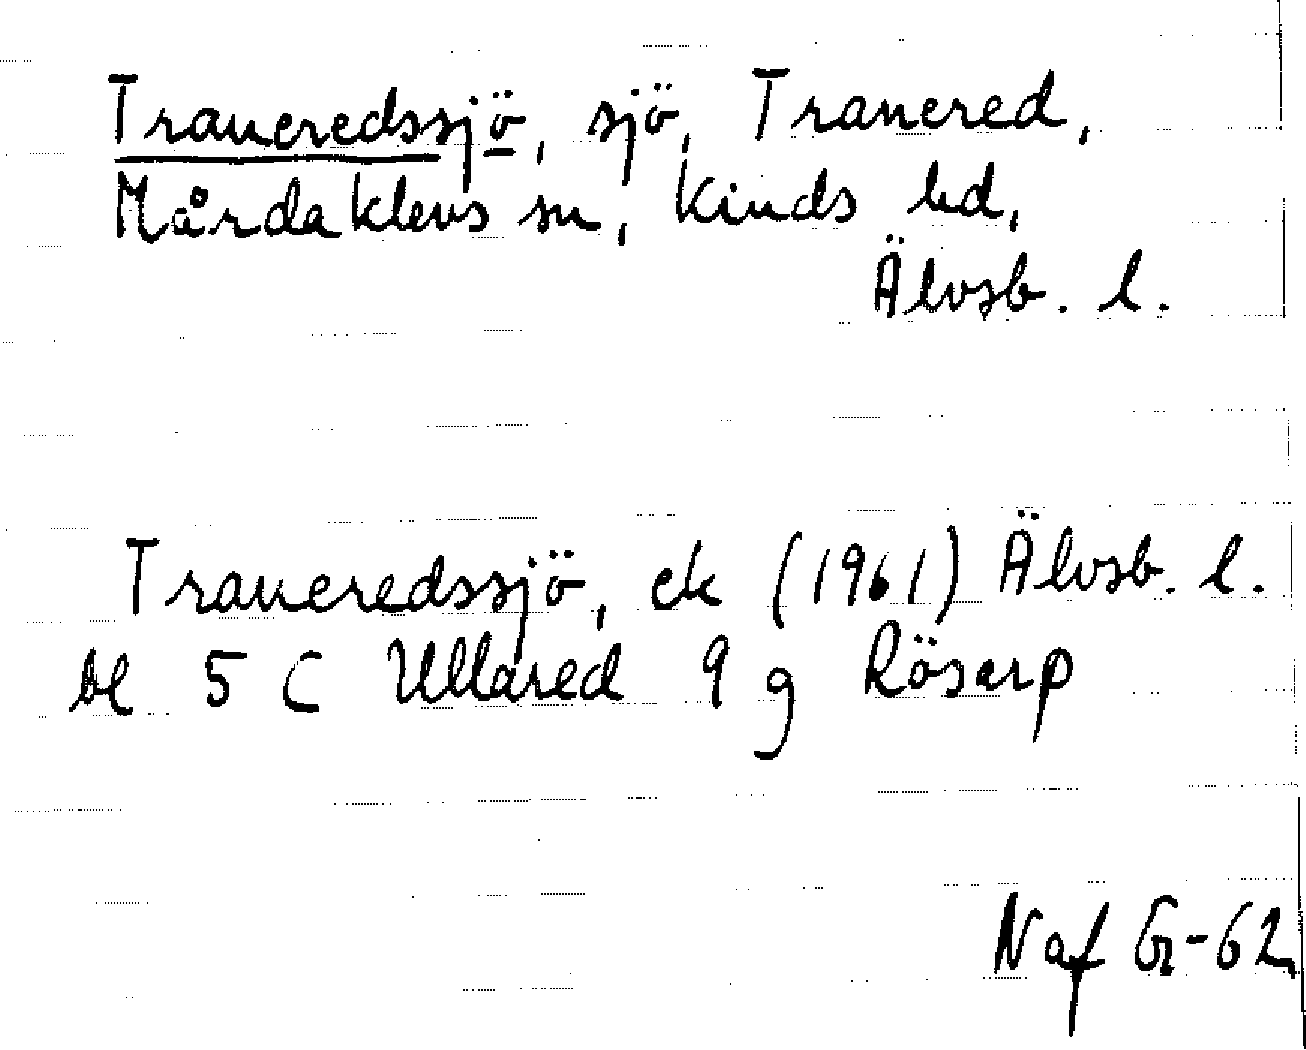 Traneredssjö, sjö, Tranered,
Mårdaklevs sn, Kinds hd,
Älvsb. l.
Traneredssjö, ek (1961) Älvsb. l.
bl 5 C Ullared 9 g Rösarp
Naf Gr-62